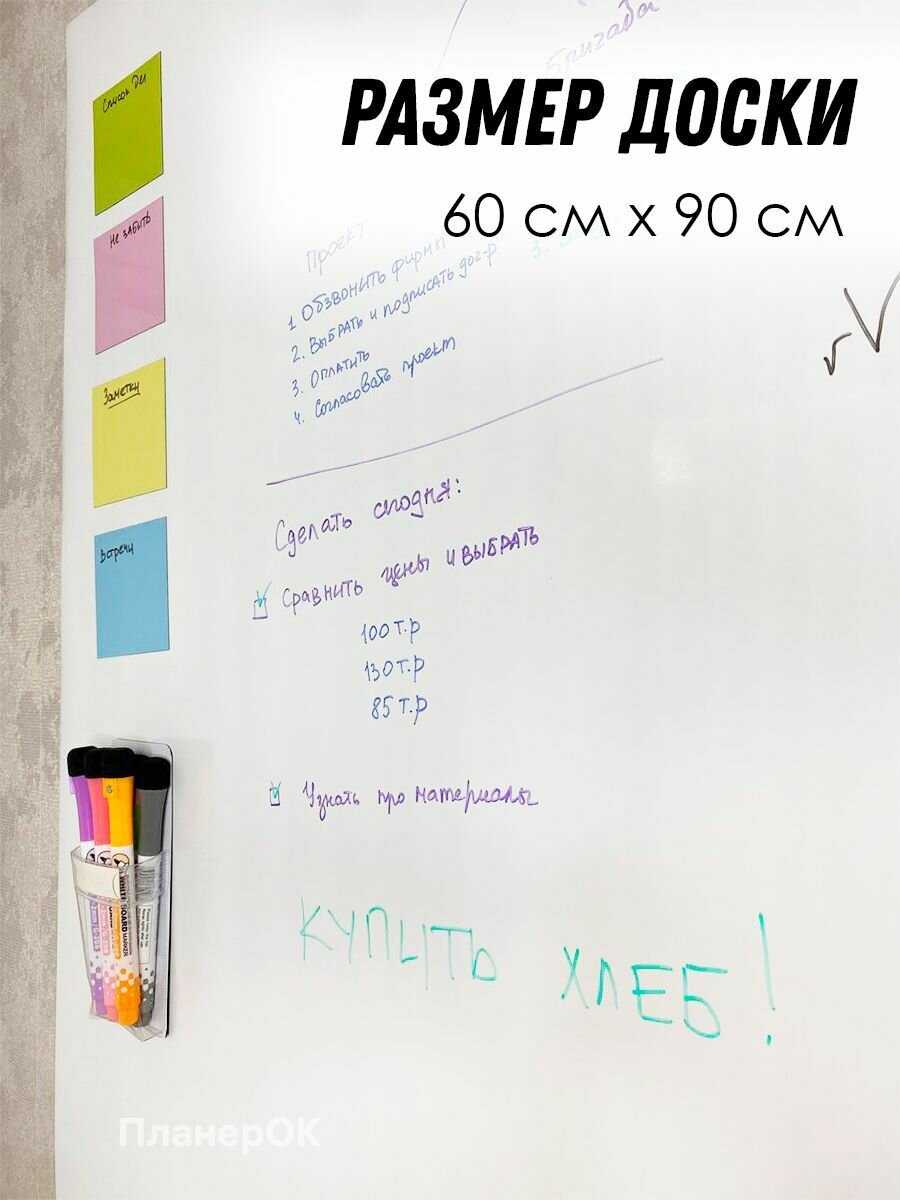 Бригада
РАЗМЕР ДОСКИ
60 см х 90 см
Список дел
Не забыть
Заметки
Встречи
Проект
1 Обзвонить фирмы
2. Выбрать и подписать дог-р
3. Оплатить
4. Согласовать проект
3.
Сделать сегодня:
Сравнить цены и выбрать
100 т.р
130 т.р
85 т.р
Узнать про материалы
КУПИТЬ ХЛЕБ!
WHITE BOARD MARKER
ПланерОК